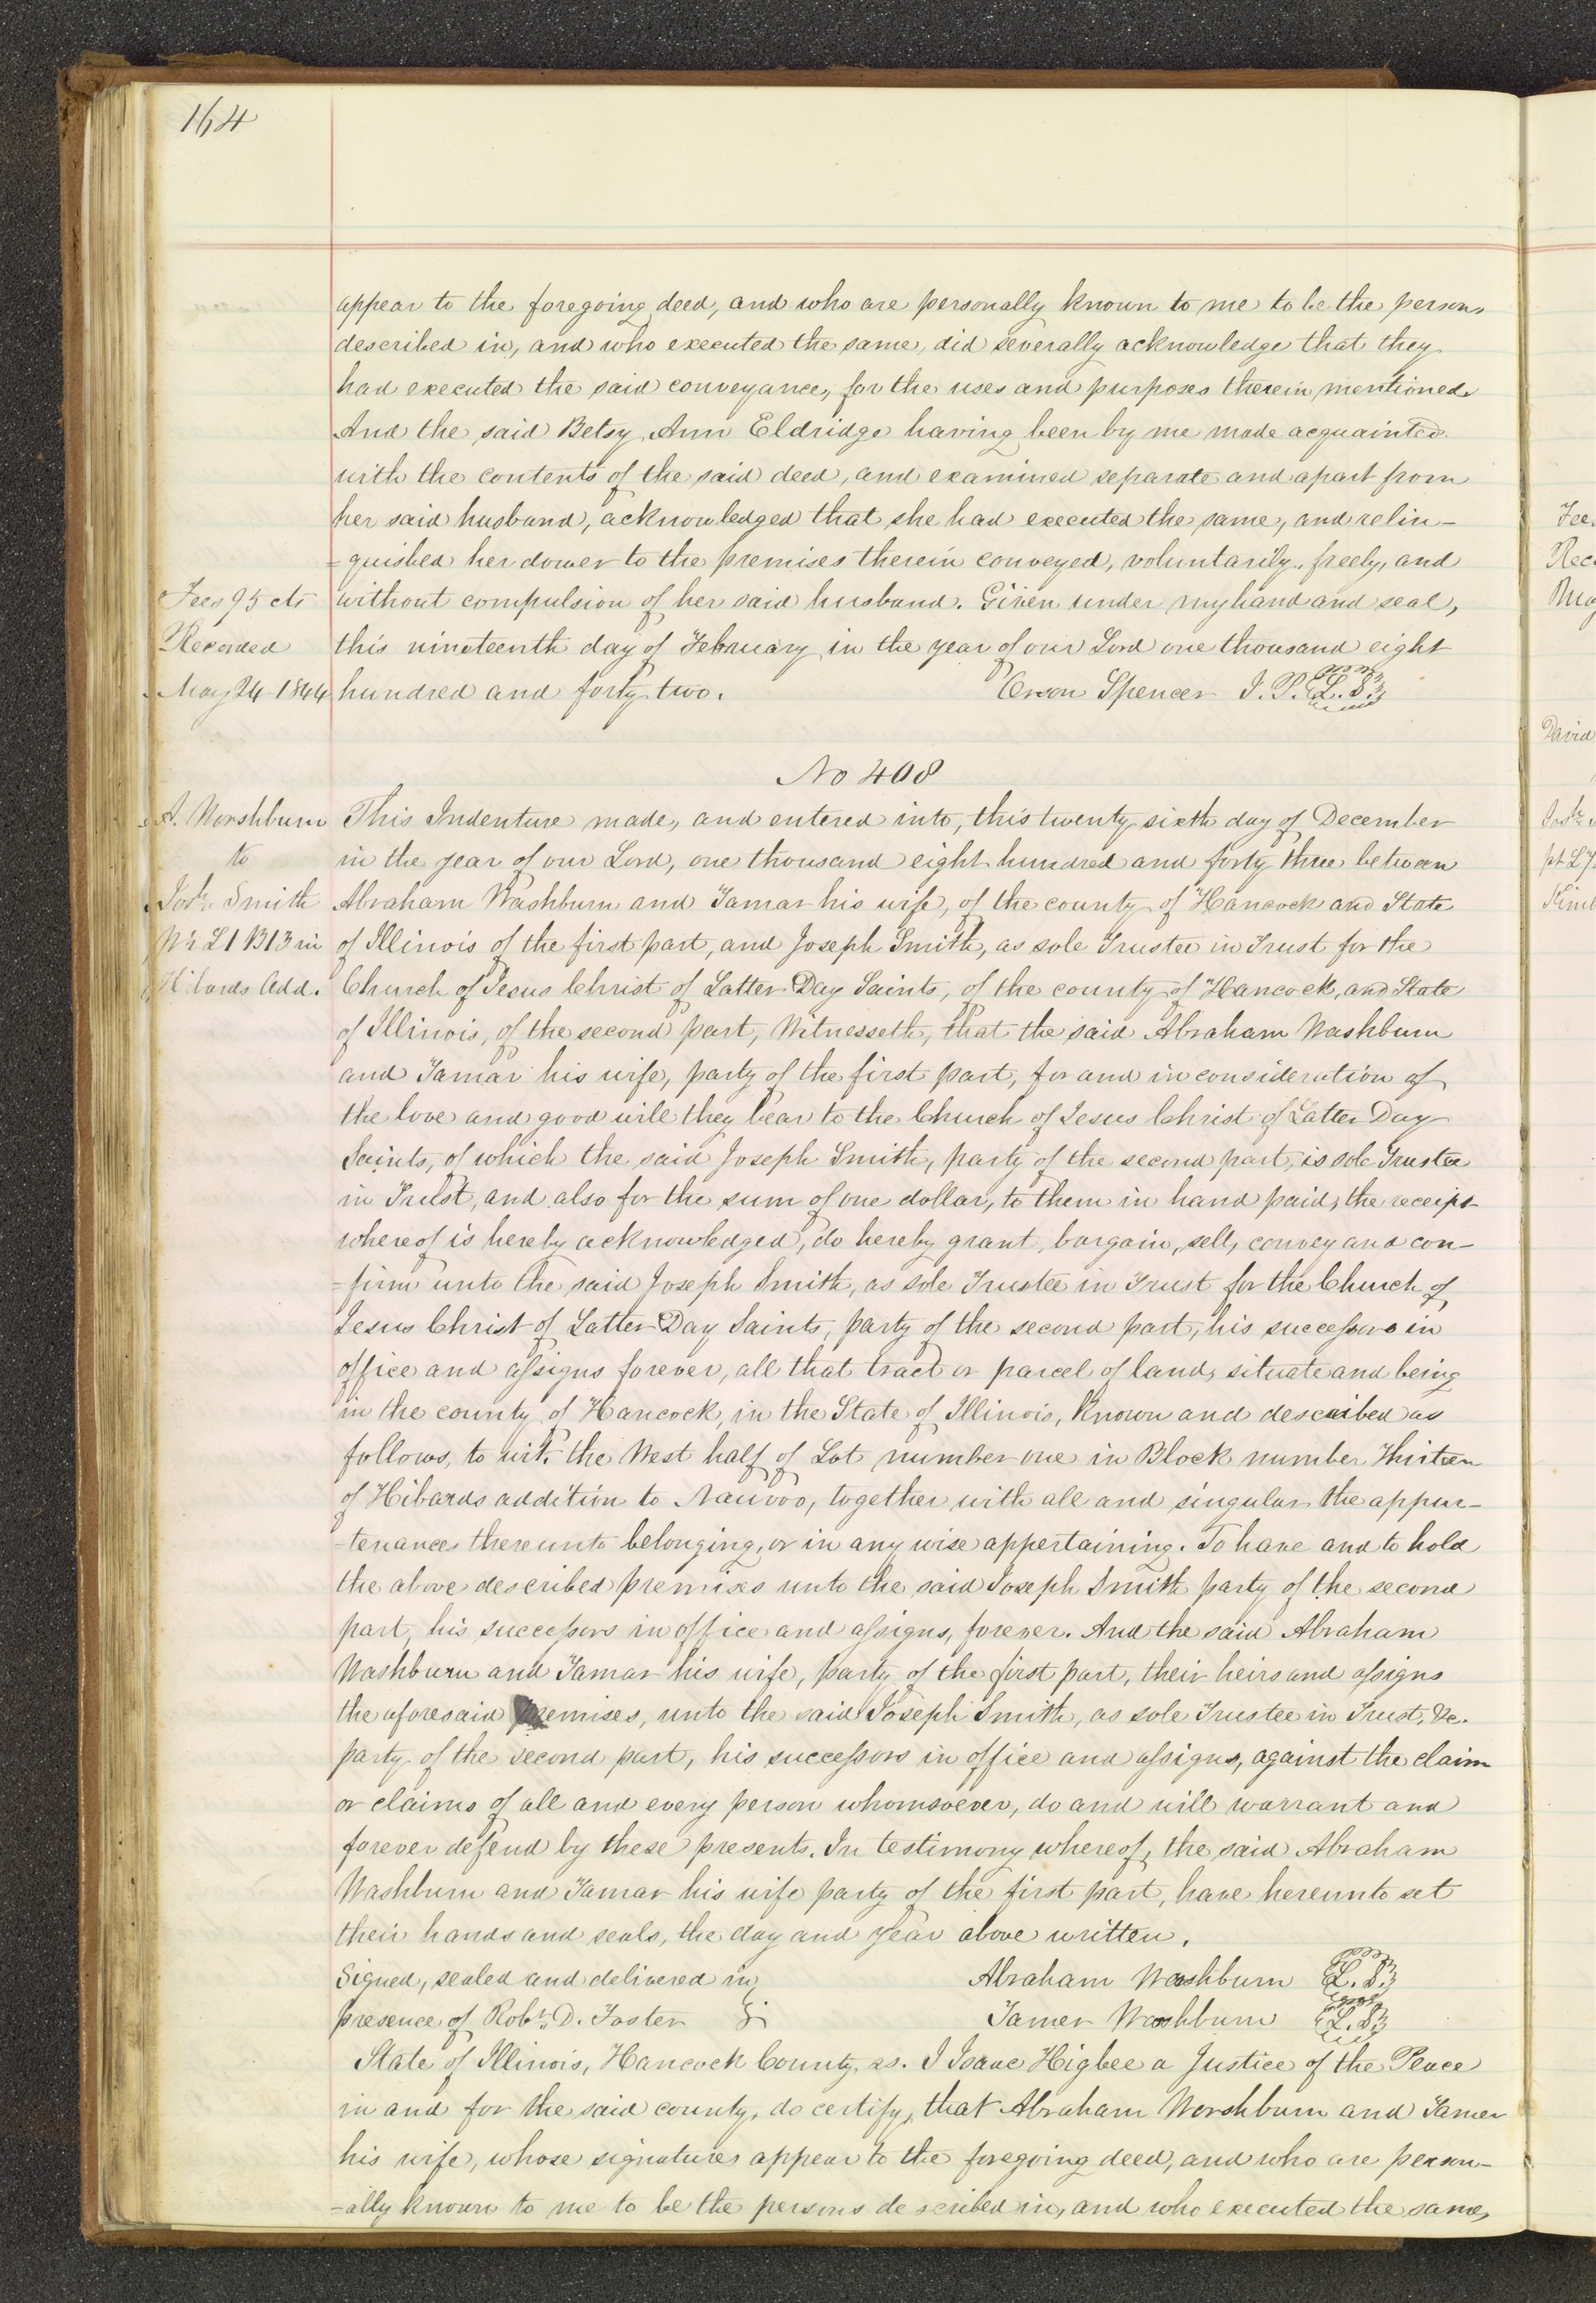 164
appear to the foregoing deed, and who are personally known to me to be the persons
described in, and who executed the same, did severally acknowledge that they
had executed the said conveyance, for the uses and purposes therein mentioned.
And the said Betsy Ann Eldridge having been by me made acquainted
with the contents of the said deed, and examined separate and apart from
her said husband, acknowledged that she had executed the same, and relin-
=quished her dower to the premises therein conveyed, voluntarily, freely, and
Fees 95 cts
without compulsion of her said husband. Given under my hand and seal,
Recorded
this nineteenth day of February in the year of our Lord one thousand eight
May 24 1844
hundred and forty two. Orson Spencer J. P. L. S.
No 408
A. Worshburn
This Indenture made, and entered into, this twenty sixth day of December
to
in the year of our Lord, one thousand eight hundred and forty three between
Josh. Smith
Abraham Washburn and Tamar his wife, of the county of Hancock and State
W½ L1 B13 in
of Illinois of the first part, and Joseph Smith, as sole Trustee in Trust for the
Hibards Add.
Church of Jesus Christ of Latter Day Saints, of the county of Hancock, and State
of Illinois, of the second part, Witnesseth, that the said Abraham Washburn
and Tamar his wife, party of the first part, for and in consideration of
the love and good will they bear to the Church of Jesus Christ of Latter Day
Saints, of which the said Joseph Smith, party of the second part, is sole Trustee
in Trust, and also for the sum of one dollar, to them in hand paid, the receipt
whereof is hereby acknowledged, do hereby grant, bargain, sell, convey and con-
=firm unto the said Joseph Smith, as sole Trustee in Trust for the Church of
Jesus Christ of Latter Day Saints, party of the second part, his successors in
office and assigns forever, all that tract or parcel of land, situate and being
in the county of Hancock, in the State of Illinois, Known and described as
follows, to wit. the West half of Lot number one in Block number Thirteen
of Hibards addition to Nauvoo, together with all and singular the appur-
-tenances thereunto belonging, or in any wise appertaining. To have and to hold
the above described premises unto the said Joseph Smith party of the second
part, his successors in office and assigns, forever. And the said Abraham
Washburn and Tamar his wife, party of the first part, their heirs and assigns
the aforesaid premises, unto the said Joseph Smith, as sole Trustee in Trust, &c.
party of the second part, his successors in office and assigns, against the claim
or claims of all and every person whomsoever, do and will warrant and
forever defend by these presents. In testimony whereof, the said Abraham
Washburn and Tamar his wife party of the first part, have hereunto set
their hands and seals, the day and year above written.
Signed, sealed and delivered in Abraham Washburn L. S.
presence of Robt. D. Foster Tamer Washburn L. S.
State of Illinois, Hancock County, ss. I Isaac Higbee a Justice of the Peace
in and for the said county, do certify, that Abraham Worshburn and Tamer
his wife, whose signatures appear to the foregoing deed, and who are person-
-ally known to me to be the persons de scribed in, and who executed the same,
Fee
Rec
David